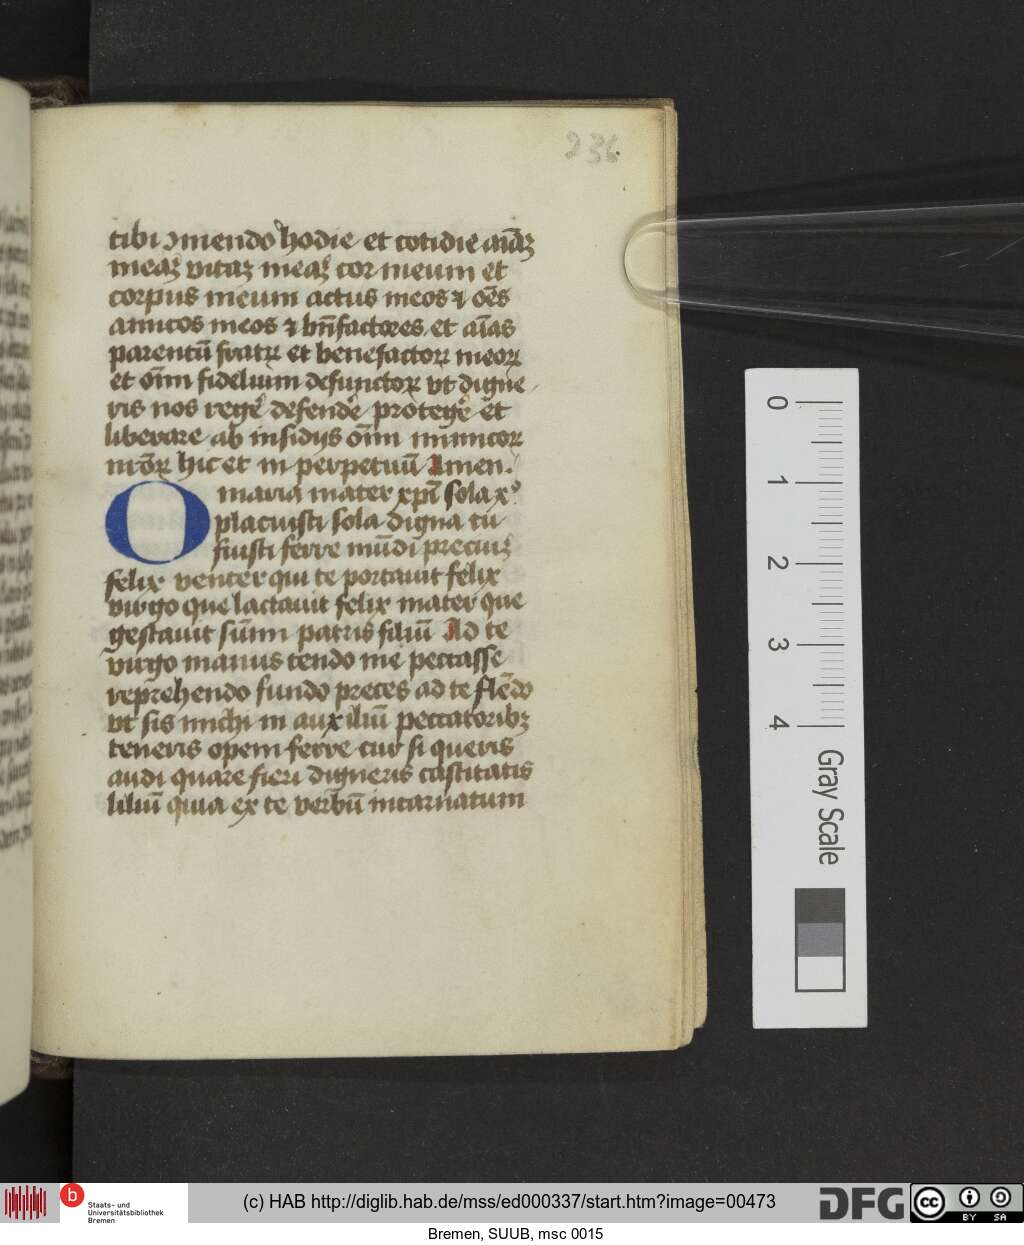 236
tibi ꝯmendo hodie et cotidie aīaꝫ
meaꝫ vitaꝫ meaꝫ cor meum et
corpus meum actus meos ⁊ oēs
amicos meos ⁊ bn̄factores et aīas
parentū fratꝝ et benefactoꝝ meoꝝ
et oīm fidelium defunctoꝝ vt digne
ris nos regē defendē protegē et
liberare ab insidijs oīm inimicoꝝ
nr̄oꝝ hic et in perpetuū Amen.
O maria mater xpī sola xº
placuisti sola digna tu
fuisti ferre mūdi preciuꝫ
felix venter qui te portauit felix
virgo que lactauit felix mater que
gestauit sūmi patris filiū Ad te
virgo manus tendo me peccasse
reprehendo fundo preces ad te flēdo
vt sis michi in auxiliū peccatoribꝫ
teneris opem ferre cur si queris
audi quare fieri digneris castitatis
liliū quia ex te verbū incarnatum
0
1
2
3
4
Gray Scale
b
Staats- und
Universitätsbibliothek
Bremen
(c) HAB http://diglib.hab.de/mss/ed000337/start.htm?image=00473
DFG
cc
BY SA
Bremen, SUUB, msc 0015